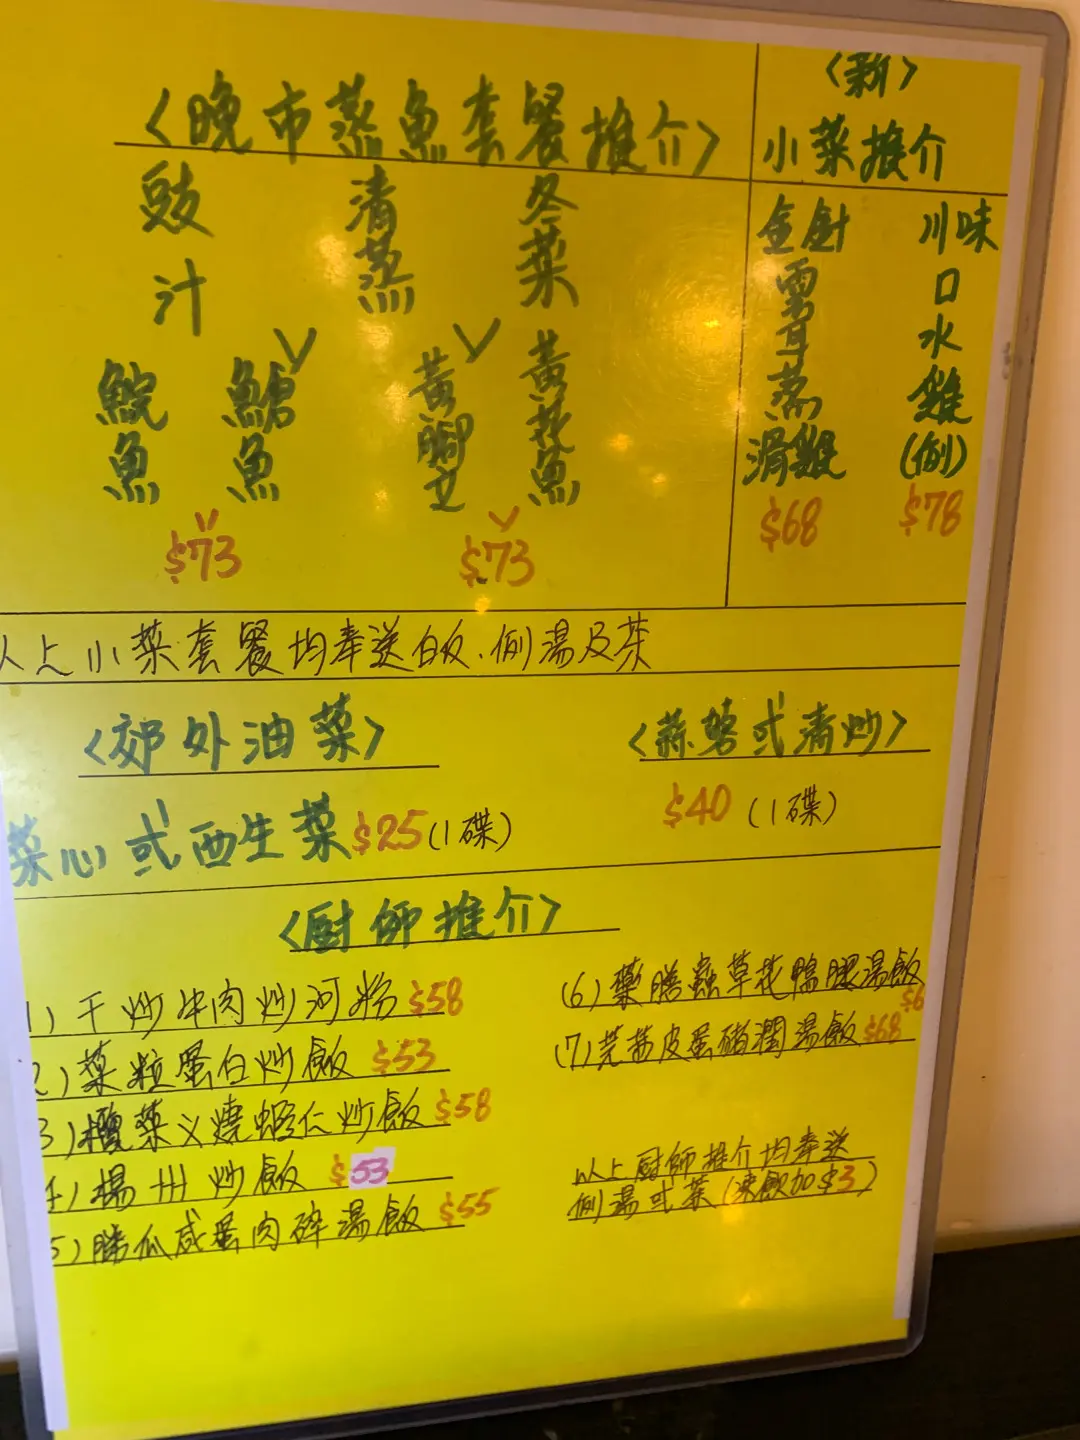 〈晚市蒸魚套餐推介〉
豉汁
清蒸
冬菜
鯇魚
鱸魚
黃腳立
黃花魚
$73
$73
〈新〉
小菜推介
金針雲耳蒸滑雞
$68
川味口水雞(例)
$78
以上小菜套餐均奉送白飯、例湯及茶
〈郊外油菜〉
菜心或西生菜$25(1碟)
〈蒜蓉或清炒〉
$40(1碟)
〈厨师推介〉
1)干炒牛肉炒河粉$58
2)菜粒蛋白炒飯$53
3)欖菜义燒蝦仁炒飯$58
4)揚州炒飯$53
5)勝瓜咸蛋肉碎湯飯$55
(6)藥膳蟲草花鴨腿湯飯
$6
(7)芫茜皮蛋豬潤湯飯$68
以上厨師推介均奉送
例湯或茶(凍飲加$3)